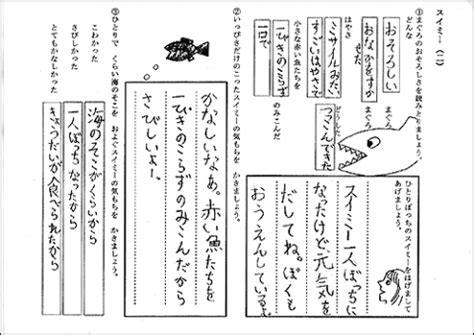 スイミー(二)
①まぐろのおそろしさを読みとりましょう。
どんな
おそろしい
おなかをすかせた
まぐろ
はやさ
すごいはやさで
ミサイルみたい
どうした
つっこんできた
まぐろ
小さな赤い魚たちを
一ぴきのこらず
一口で
のみこんだ
ひとりぼっちのスイミーをはげましてあげましょう。
スイミー一人ぼっちに
なったけど、元気を
だしてね。ぼくも
おうえんしているよ
②いっぴきだけのこったスイミーの気もちを かきましょう。
かなしいなあ。赤い魚たちを
一ぴきのこらずのみこんだから
さびしいよー。
③ひとりで くらい海のそこを およぐスイミーの気もちを かきましょう。
こわかった
海のそこがくらいから
さびしかった
一人ぼっちなったから
とてもかなしかった
きょうだいが食べられたから